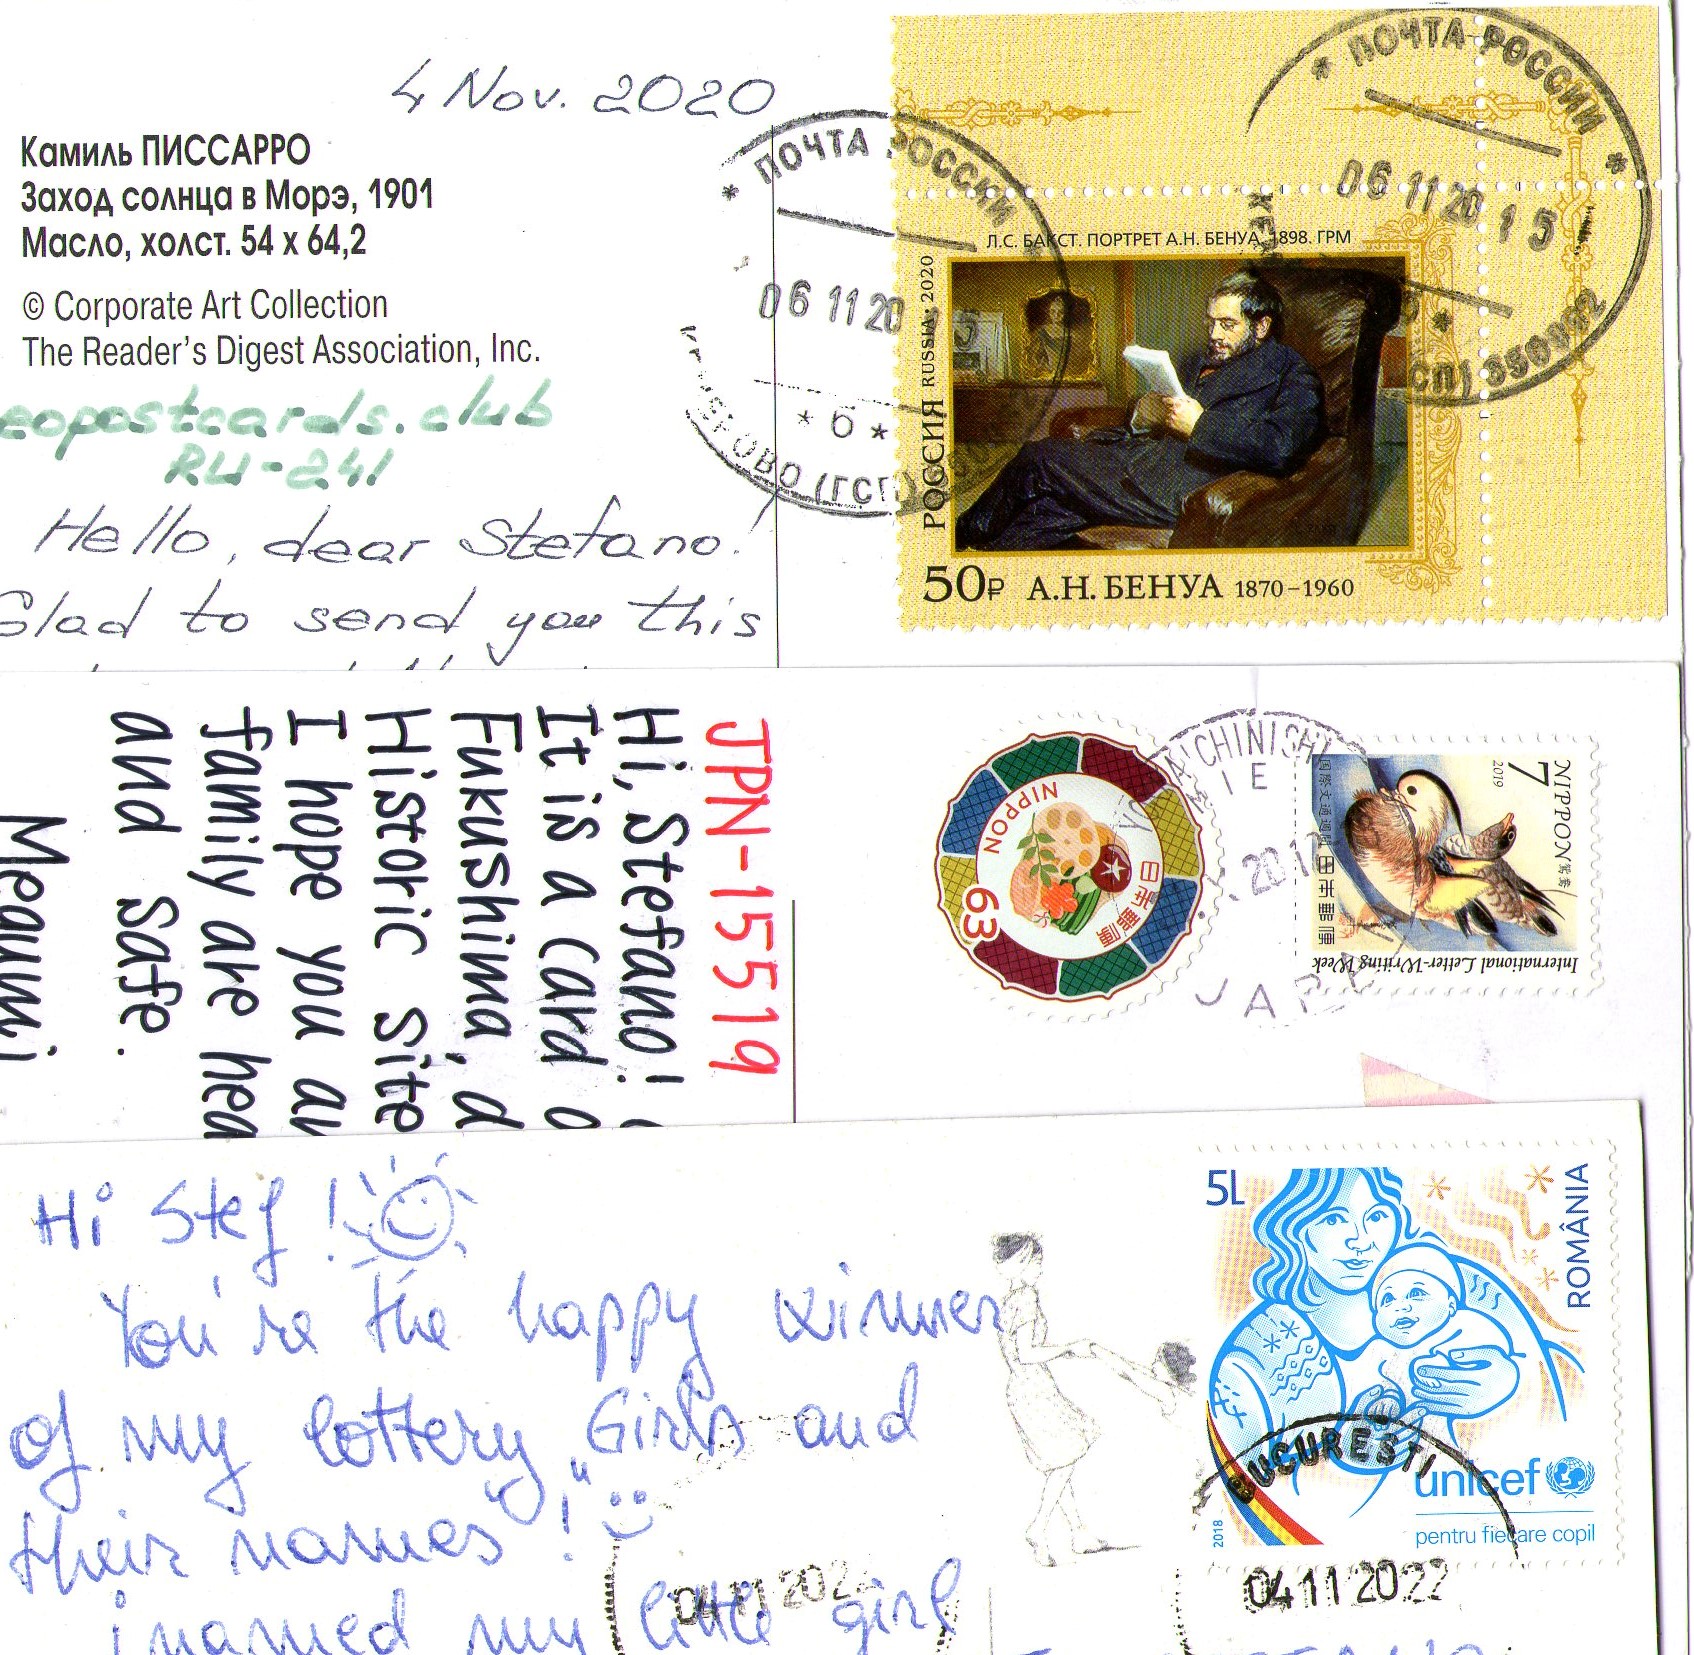 4 Nov. 2020
Камиль ПИССАРРО
Заход солнца в Морэ, 1901
Масло, холст. 54 x 64,2
© Corporate Art Collection
The Reader's Digest Association, Inc.
eopostcards.club
RU-241
Hello, dear Stefano!
Glad to send you this
* ПОЧТА РОССИИ *
06 11 20
* б *
* ПОЧТА РОССИИ *
06 11 20 15
Л.С. БАКСТ. ПОРТРЕТ А.Н. БЕНУА. 1898. ГРМ
РОССИЯ RUSSIA 2020
50₽ А.Н. БЕНУА 1870–1960
JPN-15519
Hi, Stefano!
It is a card o
Fukushima, d
Historic Site
I hope you an
family are hea
and safe.
Megumi
NIPPON
日本郵便
63
JAPAN
7 NIPPON
2019
国際文通週間
日本郵便
International Letter-Writing Week
Hi Stef!
You're the happy winner
of my lottery „Girls and
their names"!
I named my little girl
5L
ROMÂNIA
unicef
pentru fiecare copil
2018
BUCURESTI
04 11 2022
04 11 202